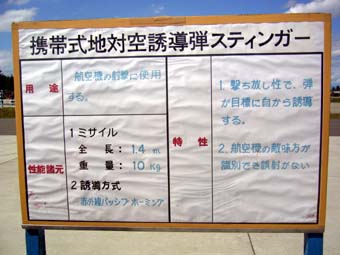 携帯式地対空誘導弾スティンガー
用途
航空機の射撃に使用
する。
性能諸元
1 ミサイル
全長: 1.4 m
重量: 10 Kg
2 誘導方式
赤外線パッシブホーミング
特性
1. 撃ち放し性で、弾
が目標に自から誘導
する。
2. 航空機の敵味方が
識別でき誤射がない